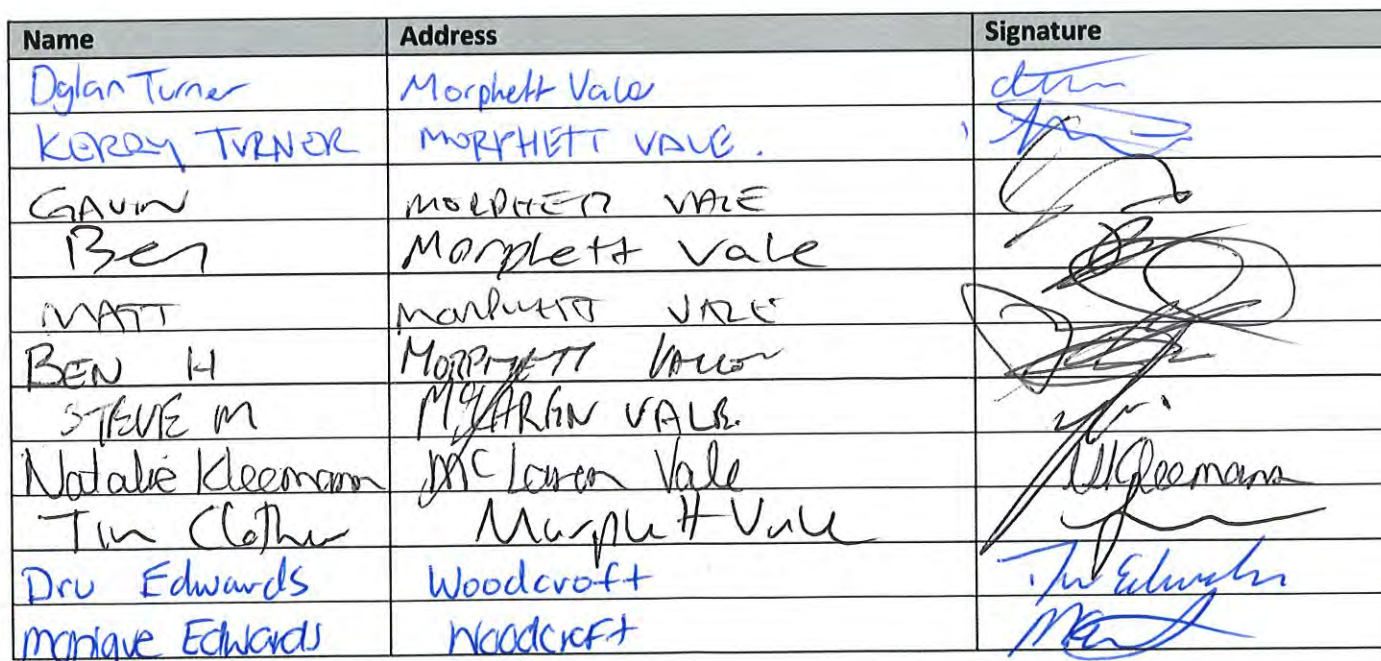 Name Address Signature
Dylan Turner Morphett Vale
KERRY TURNER MORPHETT VALE.
GAVIN MORPHETT VALE
Ben Morphett Vale
MATT MORPHETT VALE
BEN H MORPHETT VALE
STEVE M MCLAREN VALE
Natalie Kleemann McLaren Vale NKleemann
Tim Morphett Vale
Dru Edwards Woodcroft Dru Edwards
Monique Edwards Woodcroft